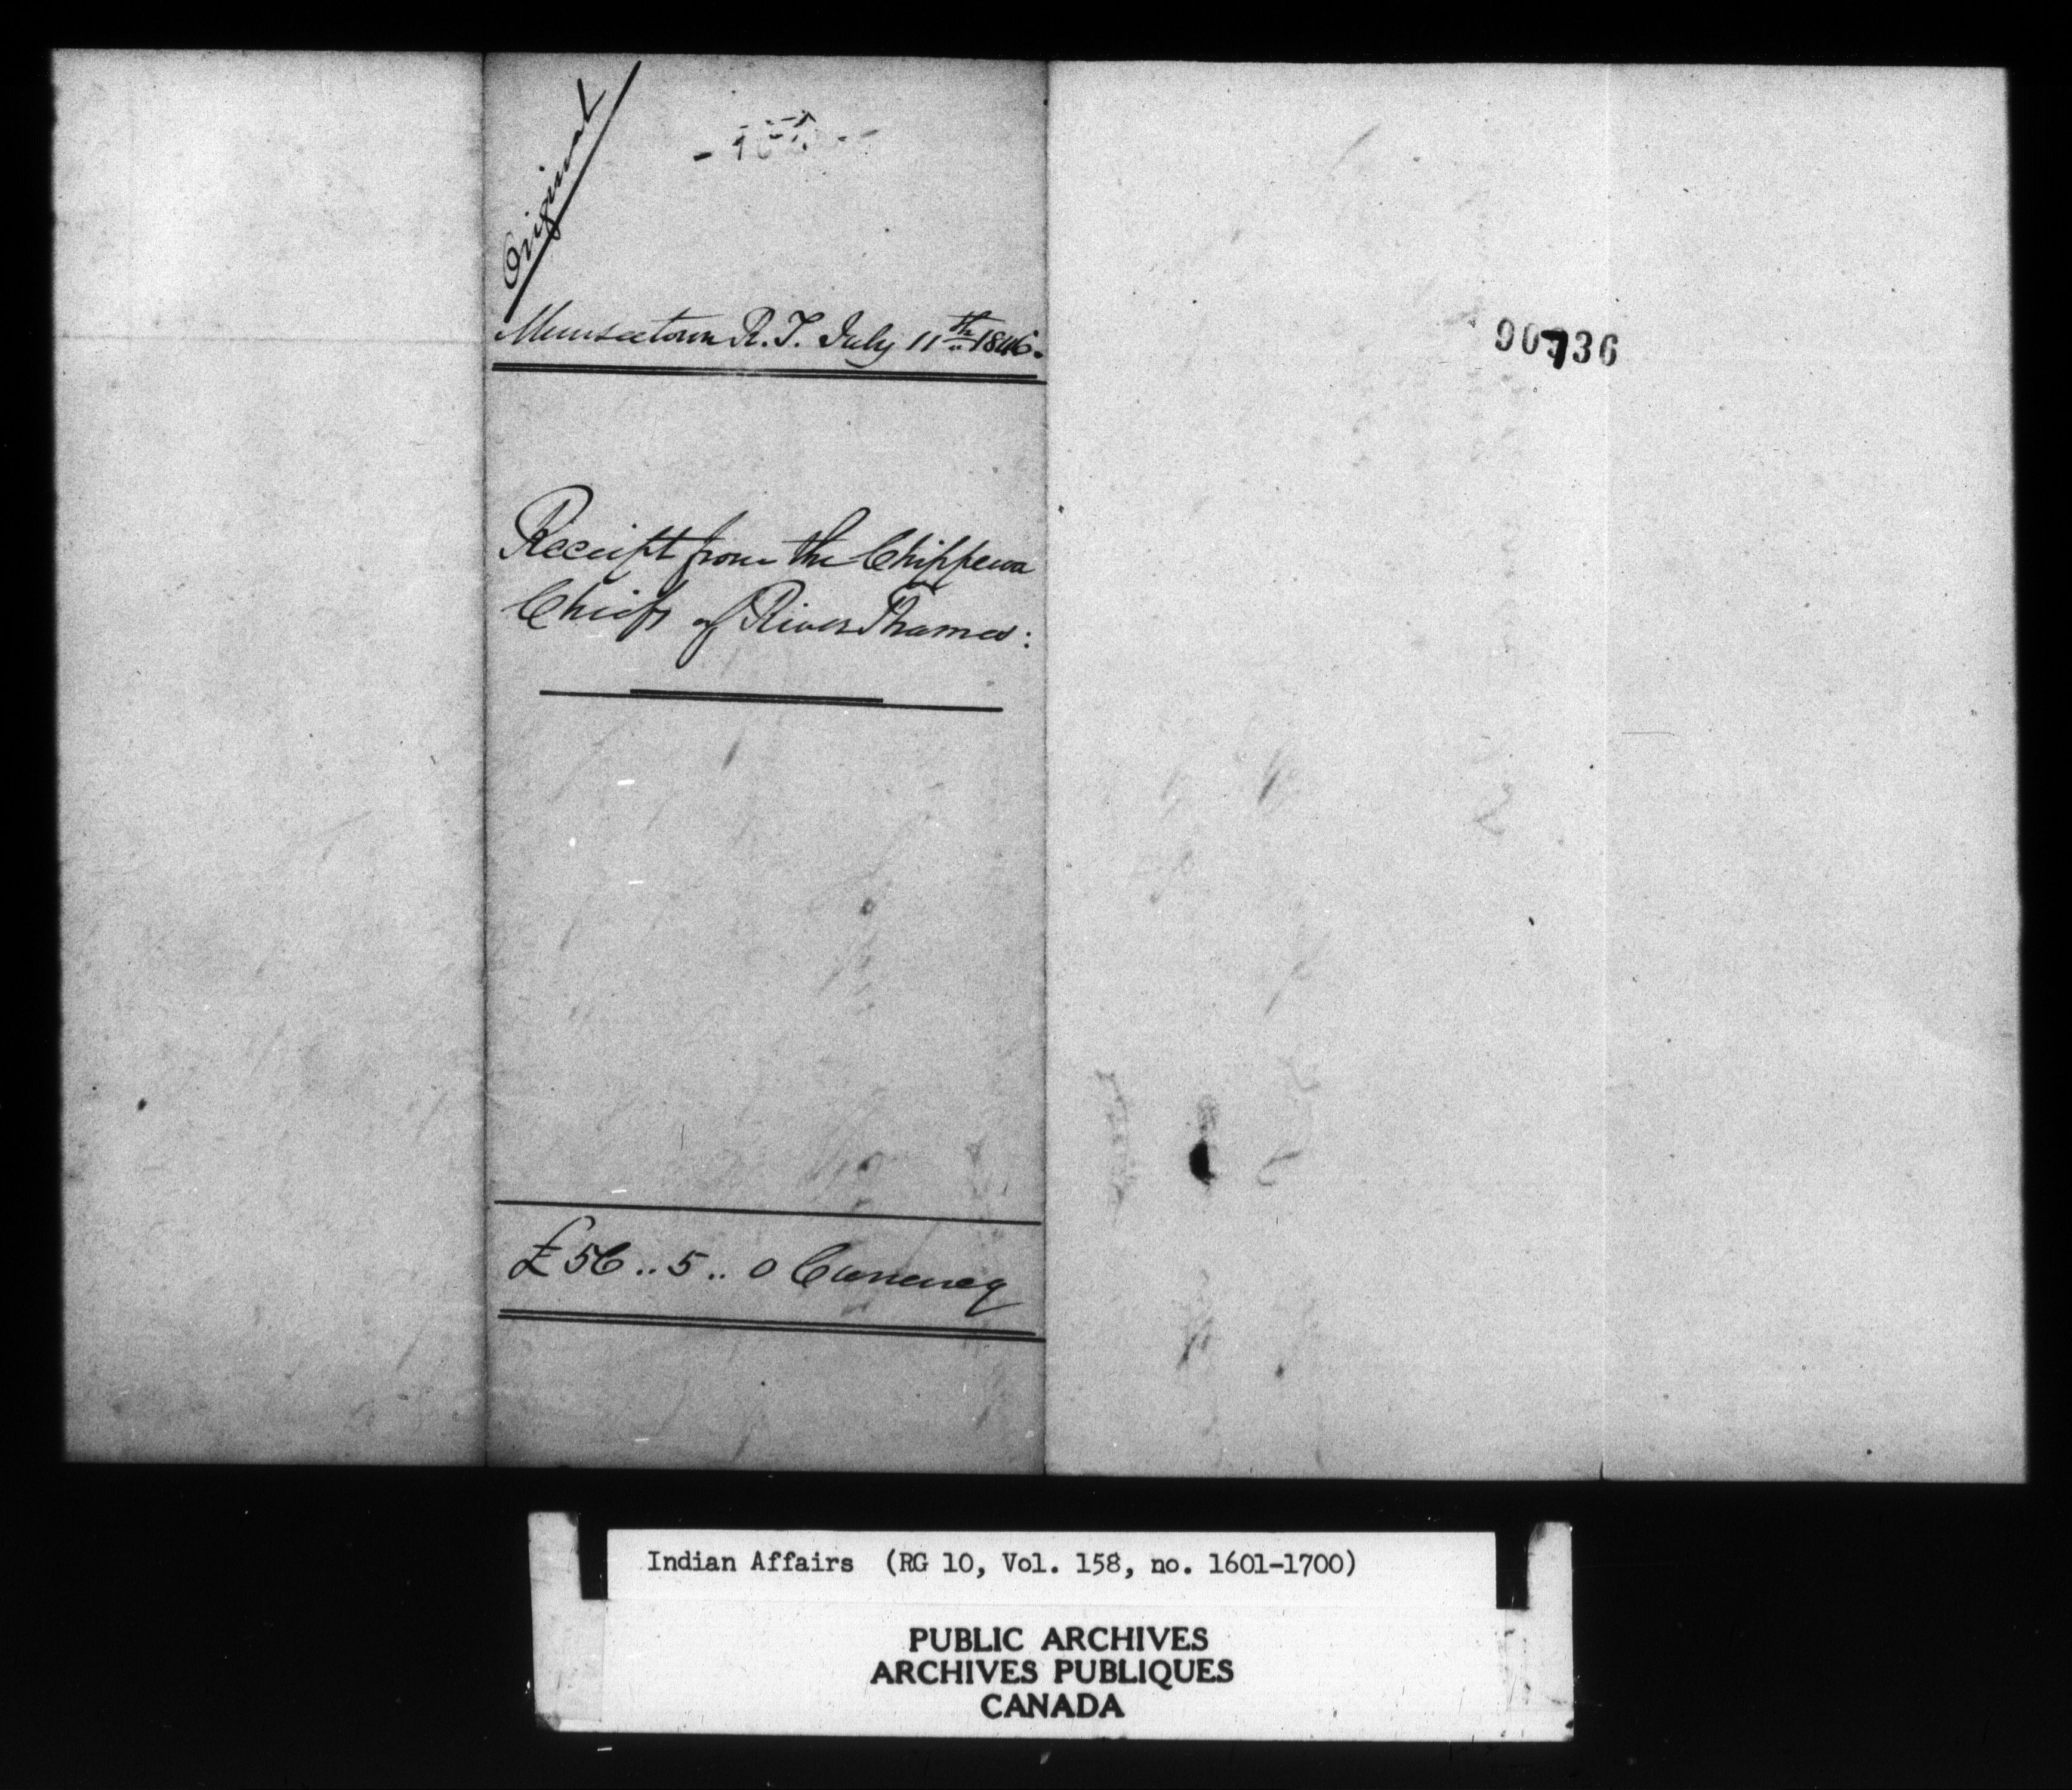 Original
Munseetown R. T. July 11th 1846.
Receipt from the Chippewa
Chiefs of River Thames:
£56..5..0 Currency
90736
Indian Affairs (RG 10, Vol. 158, no. 1601-1700)
PUBLIC ARCHIVES
ARCHIVES PUBLIQUES
CANADA